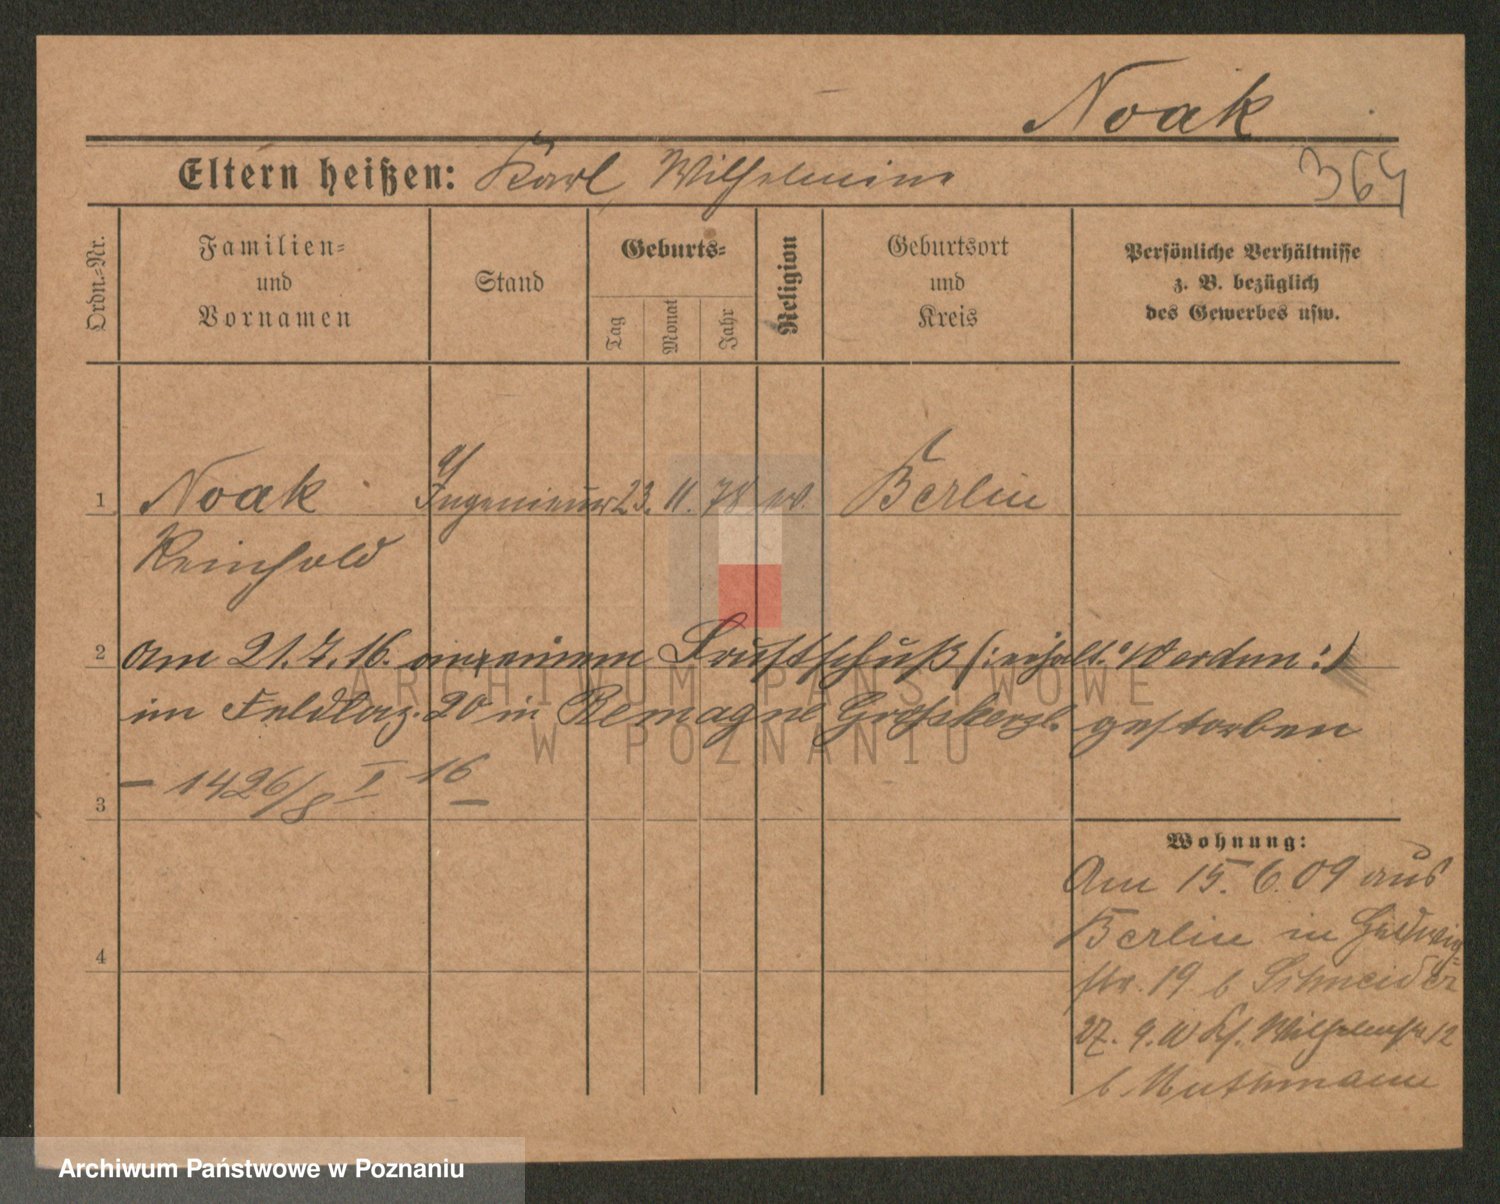 Noak
Eltern heißen: Karl, Wilhelmine
364
Ordn.-Nr.
Familien-
und
Vornamen
Stand
Geburts-
Tag
Monat
Jahr
Religion
Geburtsort
und
Kreis
Persönliche Verhältnisse
z. B. bezüglich
des Gewerbes usw.
1 Noak Ingenieur 23. 11. 78 ev. Berlin
Reinhold
2 Am 21.7.16. einem Brustschuß (: :)
im Feldlaz. 20 in gestorben
- 1426/8 I 16 -
3
Wohnung:
Am 15. 6. 09 aus
Berlin in Hedwig-
str. 19 b Schneider
27. 9. 12
4
b Muthmann
ARCHIWUM PAŃSTWOWE
W POZNANIU
Archiwum Państwowe w Poznaniu